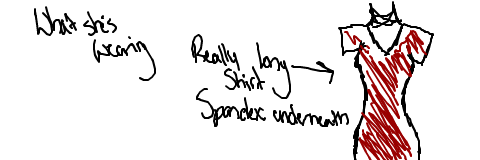 What she's
wearing
Really long
Shirt
Spandex underneath